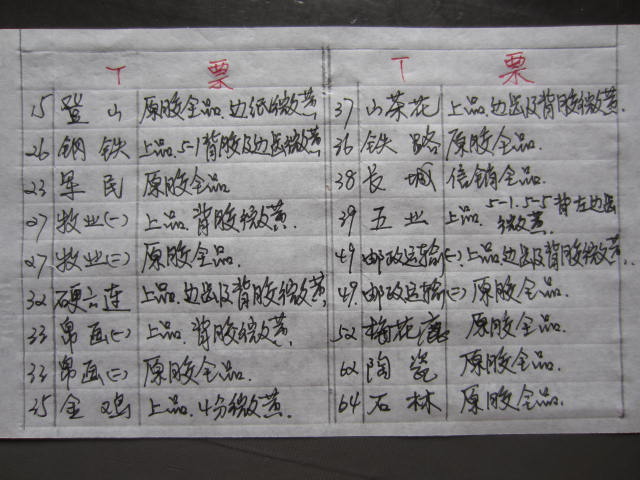 T 票
15 登山 原胶全品.边纸微黄
26 钢铁 上品.5-1背胶及边齿微黄
23 军民 原胶全品
27 牧业(一) 上品.背胶微黄.
27 牧业(二) 原胶全品.
32 硬六连 上品.边齿及背胶微黄.
33 帛画(一) 上品.背胶微黄.
33 帛画(二) 原胶全品.
35 金鸡 上品.4分微黄.
T 票
37 山茶花 上品.边齿及背胶微黄.
36 铁路 原胶全品.
38 长城 信销全品.
39 五业 上品. 5-1.5-5背左边齿微黄.
49 邮政运输(一) 上品.边齿及背胶微黄.
49 邮政运输(二) 原胶全品.
52 梅花鹿 原胶全品.
62 陶瓷 原胶全品.
64 石林 原胶全品.